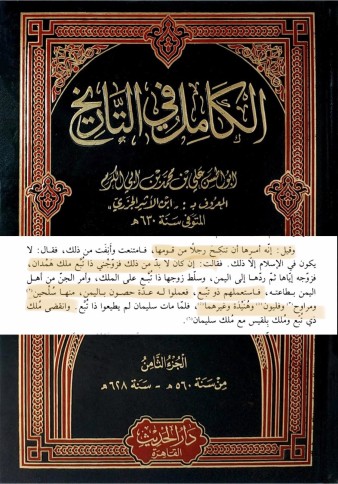 الكامل في التاريخ
ابو الحسن علي بن محمد بن ابي الكرم
المعروف بـ : "ابن الأثير الجزري"
المتوفى سنة ٦٣٠ هـ
وقيل: إنّه أمرها أن تنكح رجلاً من قومها، فامتنعت وأنِفَت من ذلك، فقال: لا
يكون في الإسلام إلّا ذلك. فقالت: إن كان لا بدّ من ذلك فزوّجْني ذا تُبّع ملك هَمْدان،
فزوّجه إيّاها ثمّ ردّها إلى اليمن، وسلّط زوجها ذا تُبّع على الملك، وأمر الجنّ من أهل
اليمن بطاعته، فاستعملهم ذو تُبّع، فعملوا له عدّة حصون باليمن، منها سَلْحين
ومراوح وفليون وهُنَيدة وغيرها، فلمّا مات سليمان لم يطيعوا ذا تُبّع. وانقضى مُلك
ذي تُبع ومُلك بِلقيس مع مُلك سليمان.
الجزء الثامن
من سنة ٥٦٠ هـ - سنة ٦٢٨ هـ
دار الحديث
القاهرة